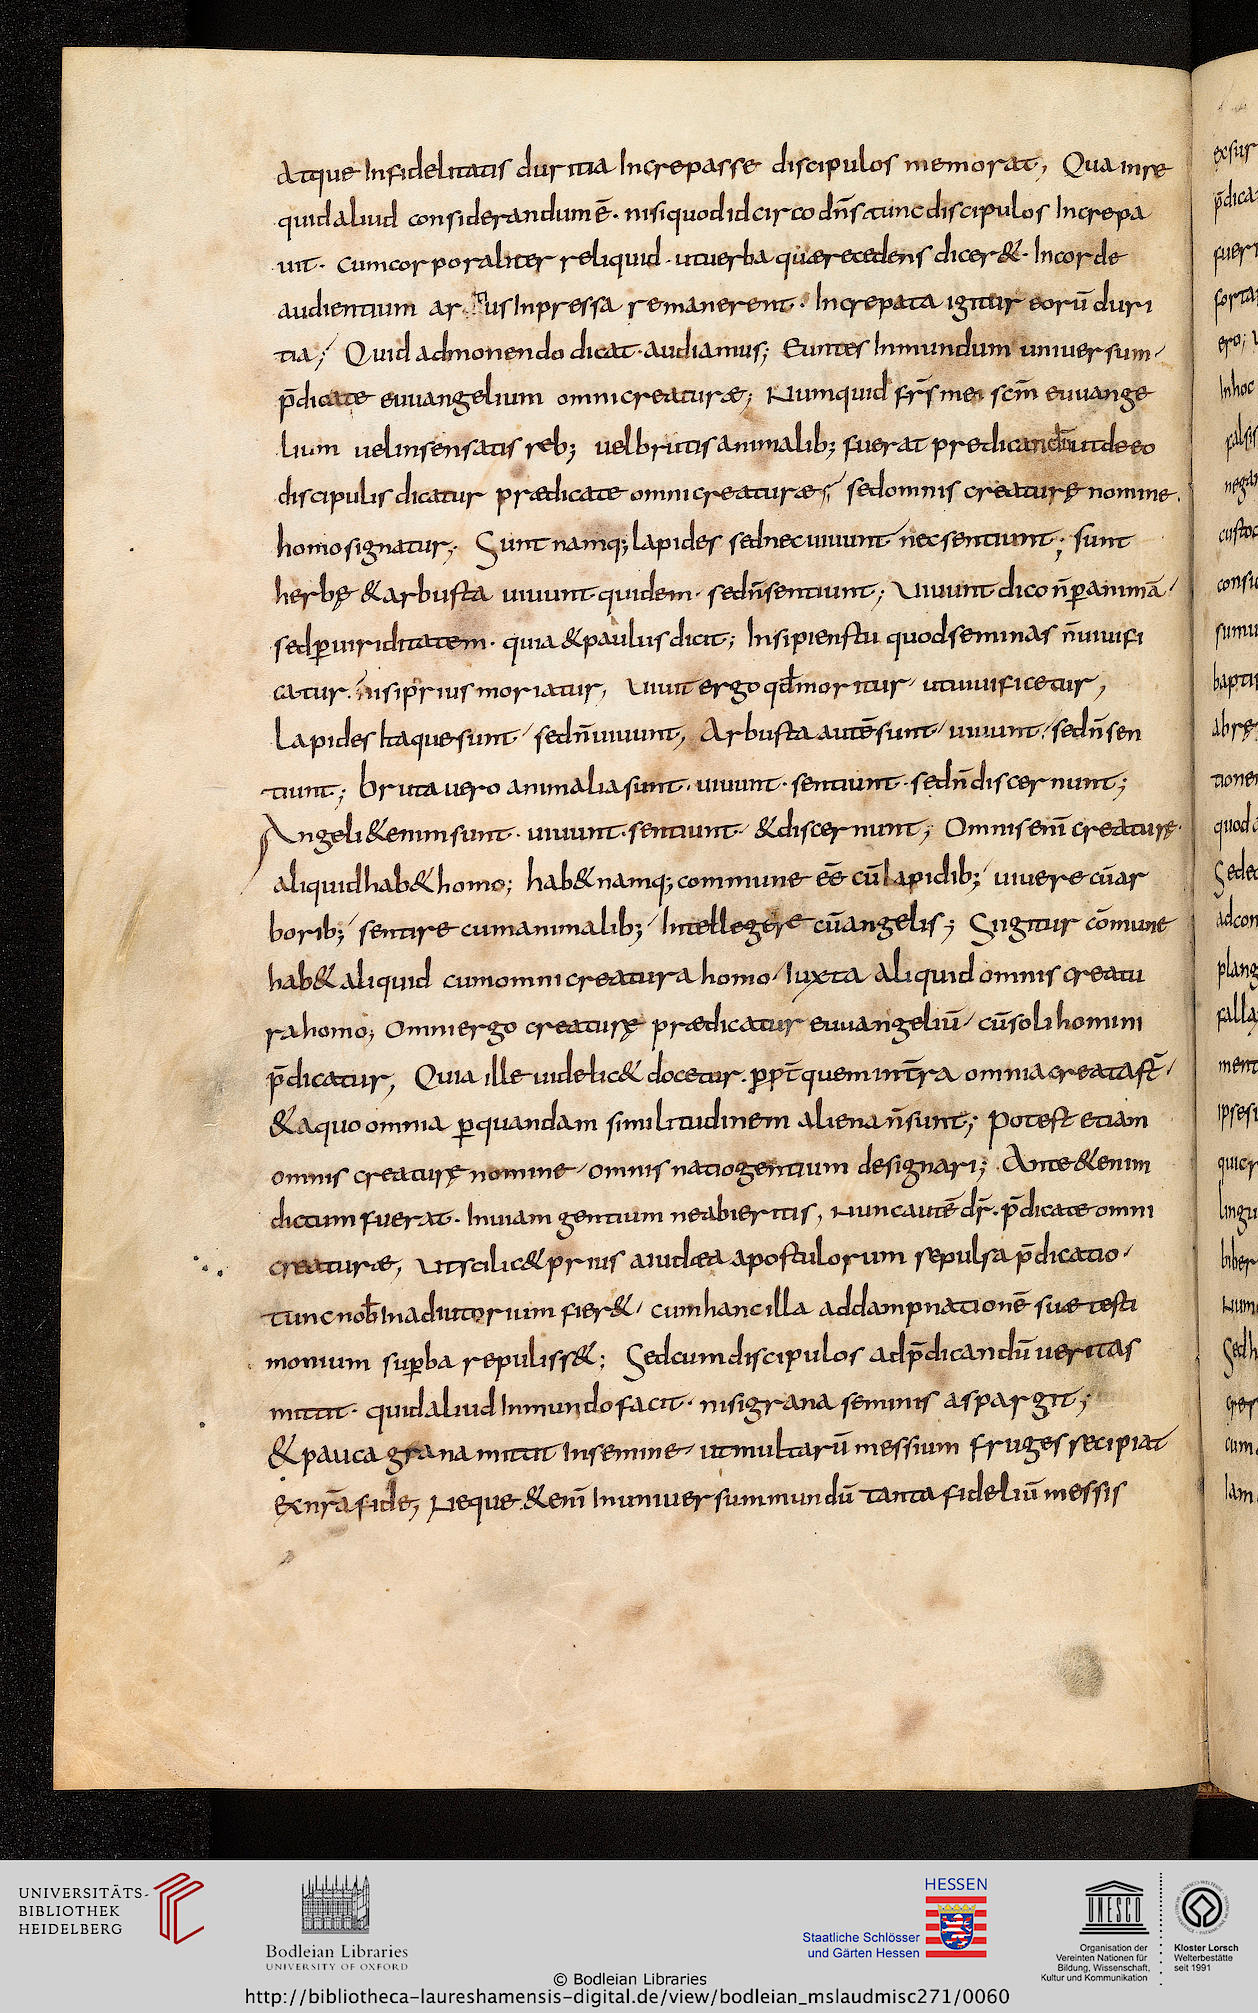 atque Infidelitatis duritia Increpasse discipulos memorat, Qua in re
quid aliud considerandum ē· nisi quod idcirco dn̄s tunc discipulos Increpa
uit· cum corporaliter reliquid· ut uerba quæ recedens dicer&· In corde
audientium ar tius Inpressa remanerent· Increpata igitur eorū duri
tia; Quid admonendo dicat· audiamus; Euntes In mundum uniuersum
p̄dicate euuangelium omni creaturæ; Numquid fr̄s mei sc̄m euuange
lium uel insensatis reb; uel brutis animalib; fuerat predicandū ut de eo
discipulis dicatur prædicate omni creaturæ; sed omnis creaturę nomine
homo signatur; Sunt namq; lapides sed nec uiuunt nec sentiunt; sunt
herbę & arbusta uiuunt quidem· sed n̄ sentiunt; Uiuunt dico n̄ ꝑ animā
sed ꝑ uiriditatem· quia & paulus dicit; Insipiens tu quod seminas n̄ uiuifi
catur· nisi prius moriatur, Uiuit ergo qđ moritur ut uiuificetur,
Lapides Itaque sunt sed n̄ uiuunt, Arbusta autē sunt uiuunt· sed n̄ sen
tiunt; bruta uero animalia sunt· uiuunt· sentiunt· sed n̄ discernunt;
Angeli &enim sunt· uiuunt· sentiunt· & discernunt; Omnis enī creaturę
aliquid hab& homo; hab& namq; commune eē cū lapidib; uiuere cū ar
borib; sentire cum animalib; Intellegere cū angelis; Si igitur cōmune
hab& aliquid cum omni creatura homo Iuxta aliquid omnis creatu
ra homo; Omni ergo creaturę prædicatur euuangeliū cū soli homini
p̄dicatur, Quia ille uidelic& docetur· ꝓpt̄ quem in t̄ra omnia creata st̄
& a quo omnia ꝑ quandam similitudinem aliena n̄ sunt; Potest etiam
omnis creaturę nomine omnis natio gentium designari; Ante &enim
dictum fuerat· In uiam gentium ne abieritis, Nunc autē dr̄· p̄dicate omni
creaturæ, Ut scilic& prius a iudæa apostulorum sepulsa p̄dicatio
tunc nob̄ In adiutorium fier& cum hanc illa ad dampnationē suæ testi
monium suꝑba repuliss&; Sed cum discipulos ad p̄dicandū ueritas
mittit· quid aliud In mundo facit· nisi grana seminis aspargit;
& pauca grana mittit In semine ut multarū messium fruges recipiat
ex nr̄a fide, Neque &enī In uniuersum mundū tanta fideliū messis
exsur
p̄dica
fueri
forta
ero;
In hoc
falsis
negan
custod
consid
sumu
baptis
abrę
tionem
quod
Sed ec
ad con
plang
falla
ment
ipse su
quicr
lingu
biber
Num
Sed h
crer
cum
Iam
UNIVERSITÄTS-
BIBLIOTHEK
HEIDELBERG
Bodleian Libraries
UNIVERSITY OF OXFORD
HESSEN
Staatliche Schlösser
und Gärten Hessen
UNESCO
Organisation der
Vereinten Nationen für
Bildung, Wissenschaft,
Kultur und Kommunikation
Kloster Lorsch
Welterbestätte
seit 1991
© Bodleian Libraries
http://bibliotheca-laureshamensis-digital.de/view/bodleian_mslaudmisc271/0060